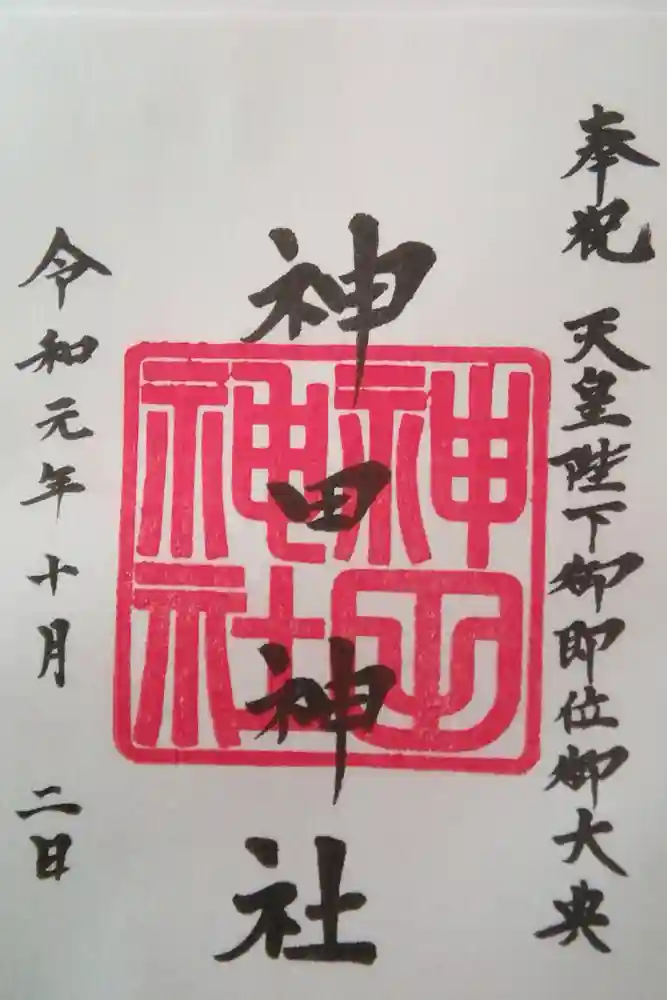 奉祝 天皇陛下御即位御大典
神田神社
神田神社
令和元年十月 二日